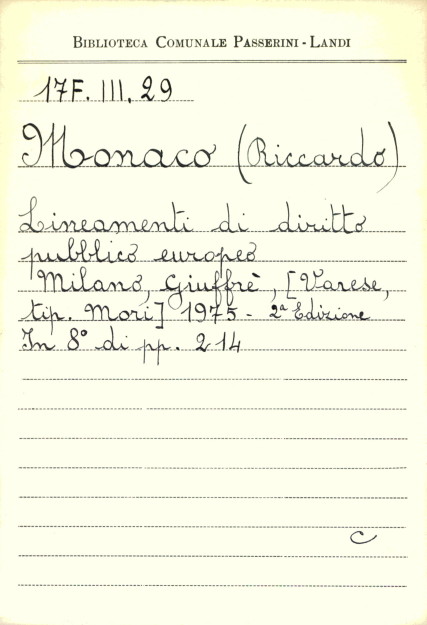 BIBLIOTECA COMUNALE PASSERINI - LANDI
17F. III. 29
Monaco (Riccardo)
Lineamenti di diritto
pubblico europeo
Milano, Giuffrè, [Varese,
tip. Mori] 1975 - 2ª Edizione
In 8° di pp. 214
C